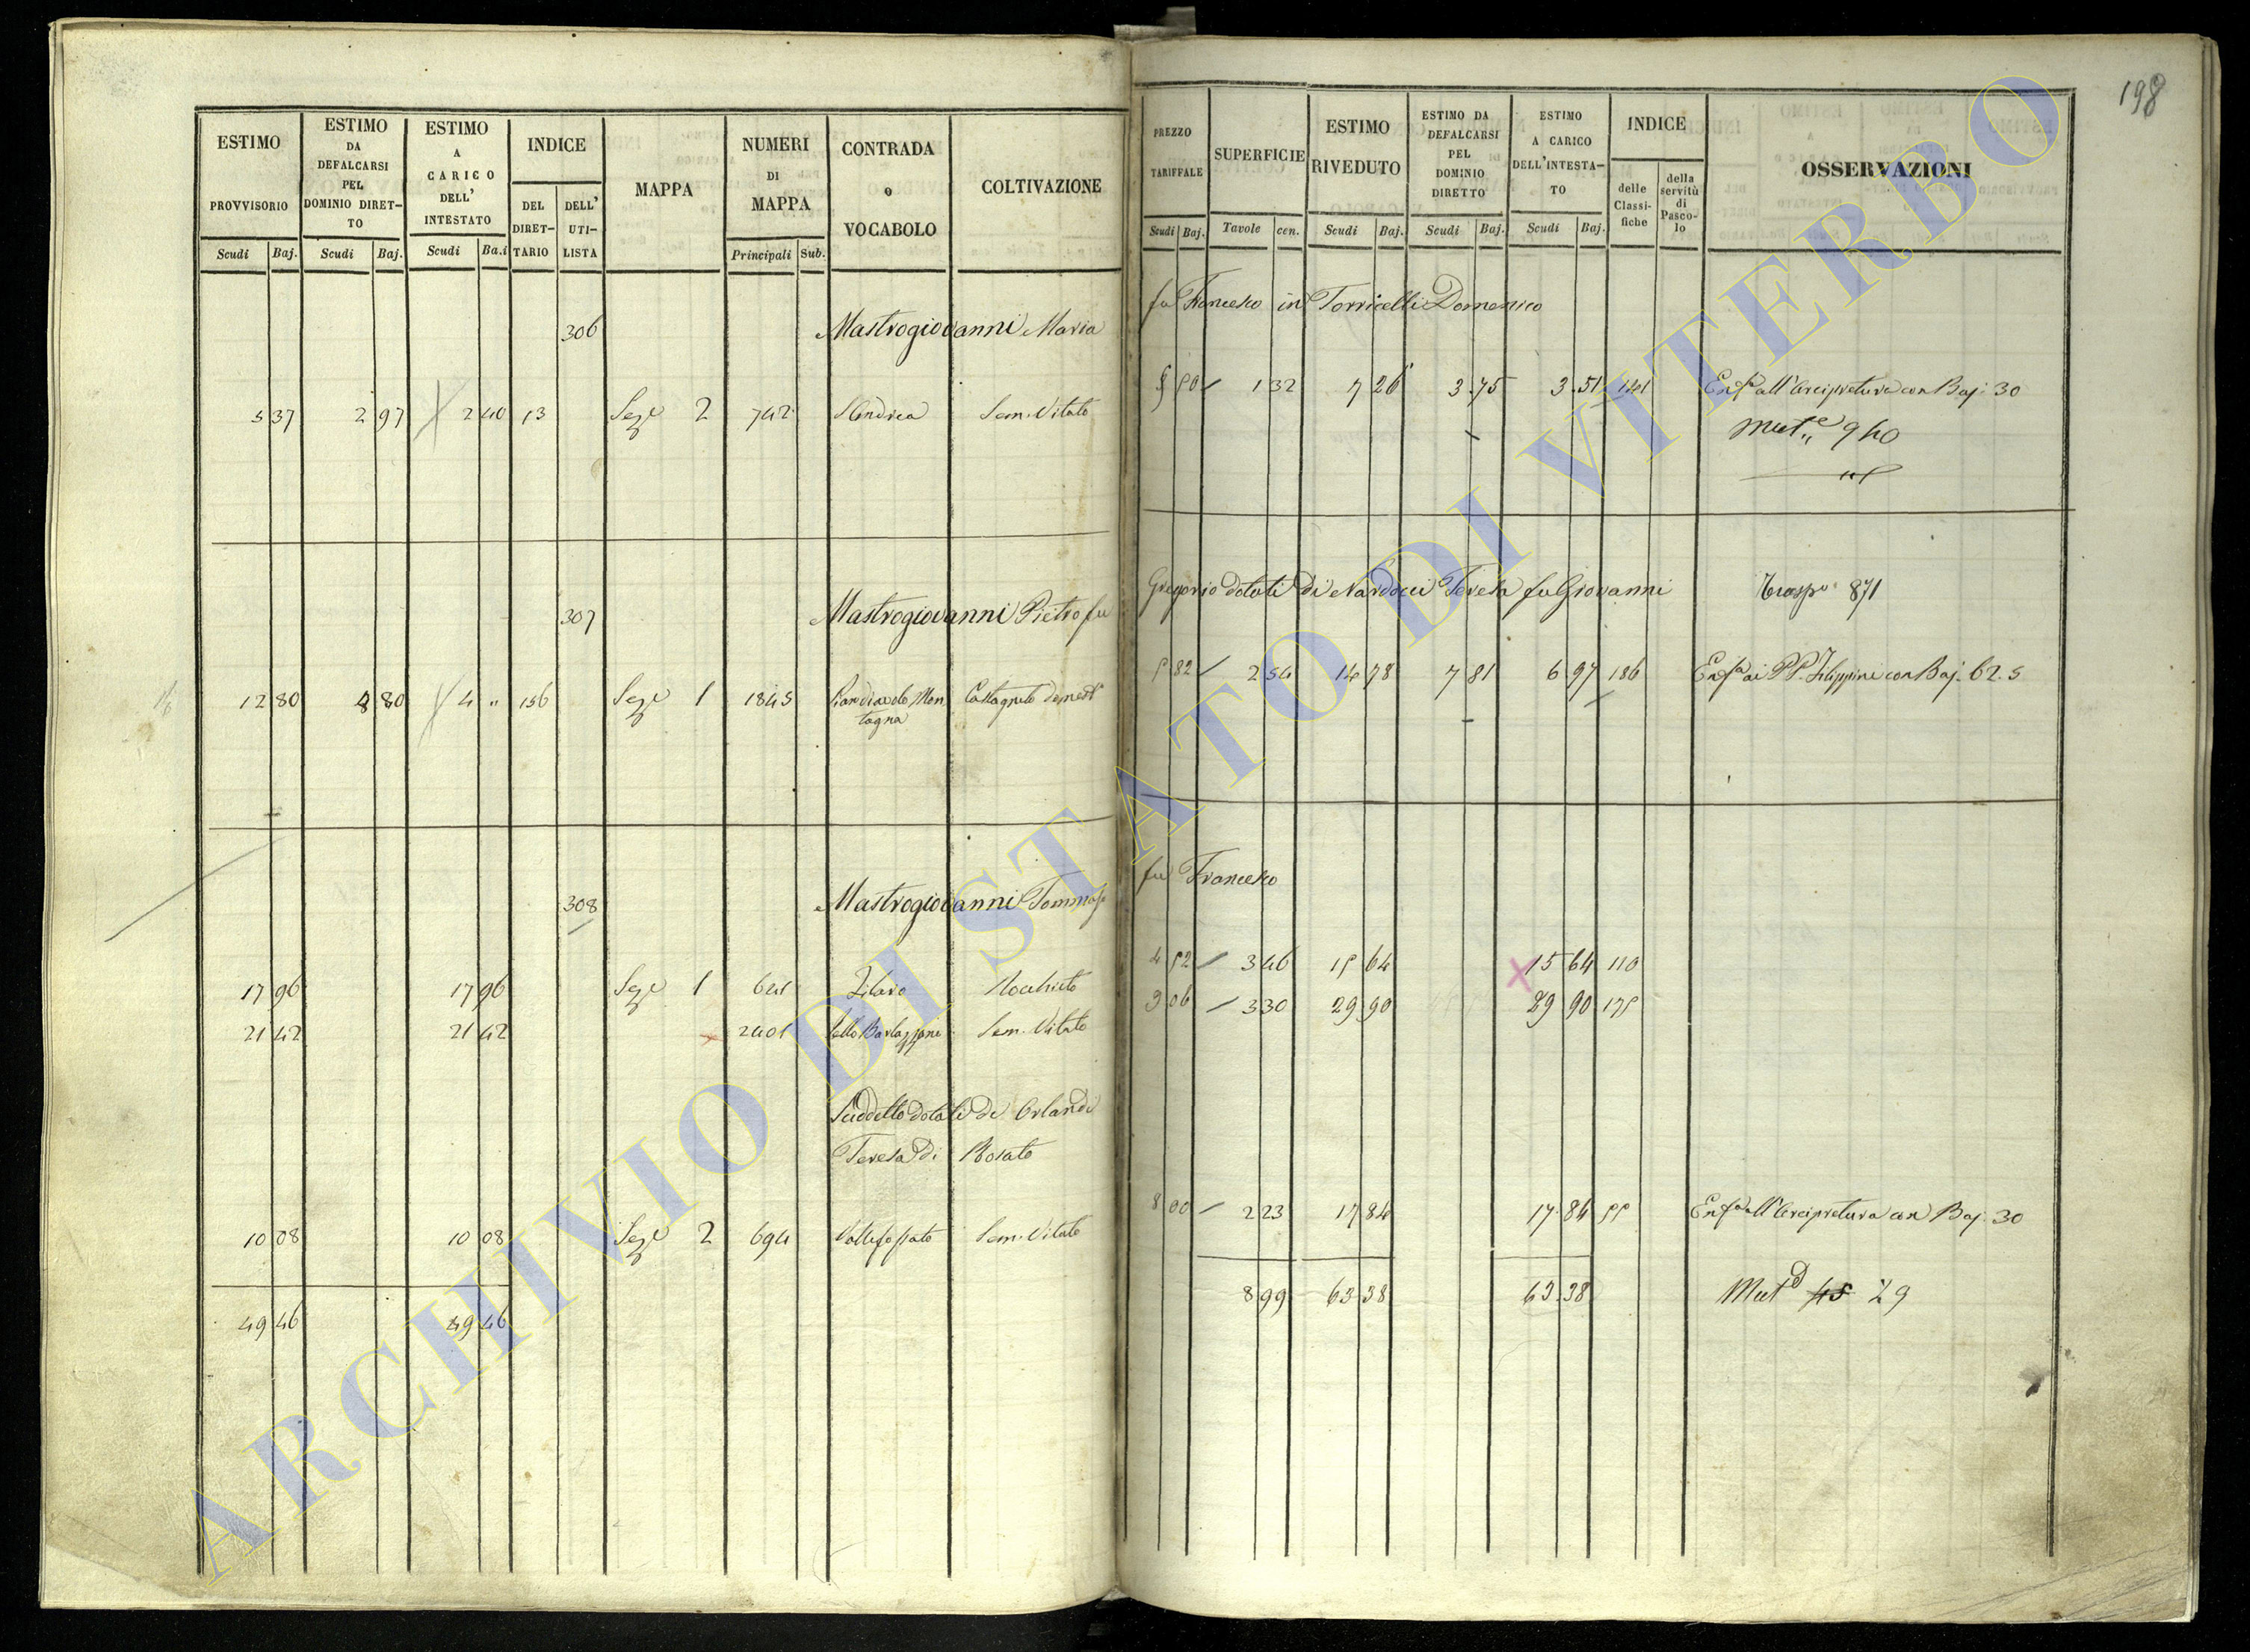 198
ESTIMO PROVVISORIO Scudi Baj.
ESTIMO DA DEFALCARSI PEL DOMINIO DIRET-TO Scudi Baj.
ESTIMO A CARICO DELL' INTESTATO Scudi Ba.i
INDICE DEL DIRET-TARIO DELL' UTI-LISTA
MAPPA
NUMERI DI MAPPA Principali Sub.
CONTRADA o VOCABOLO
COLTIVAZIONE
PREZZO TARIFFALE Scudi Baj.
SUPERFICIE Tavole cen.
ESTIMO RIVEDUTO Scudi Baj.
ESTIMO DA DEFALCARSI PEL DOMINIO DIRETTO Scudi Baj.
ESTIMO A CARICO DELL'INTESTA-TO Scudi Baj.
INDICE delle Classi-fiche della servitù di Pasco-lo
OSSERVAZIONI
306 Mastrogiovanni Maria fu Francesco in Torricelli Domenico
5 37 2 97 2 40 13 Seze 2 742 S Andrea Sem. Vitato 5 50 1 32 7 26 3 75 3 51 141 Enfa all'Arcipretura con Baj. 30
Mut.e 940
307 Mastrogiovanni Pietro fu Gregorio dotati di Nardocci Teresa fu Giovanni Trasp.o 871
12 80 8 80 4 " 136 Seze 1 1845 Montagna Castagneto domest.o 5 82 2 54 14 78 7 81 6 97 186 Enfa ai PP. Filippini con Baj. 62.5
308 Mastrogiovanni Tommaso fu Francesco
17 96 17 96 Seze 1 641 4 52 3 46 15 64 15 64 110
21 42 21 42 2401 Sem. Vitato 9 06 3 30 29 90 29 90 175
Suddetto dotati di Orlandi
Teresa di Rosato
10 08 10 08 Seze 2 694 Vallefossato Sem. Vitato 8 00 2 23 17 84 17 84 55 Enfa all'Arcipretura con Baj. 30
49 46 49 46 8 99 63 38 63 38 Mut.e 45 29
ARCHIVIO DI STATO DI VITERBO